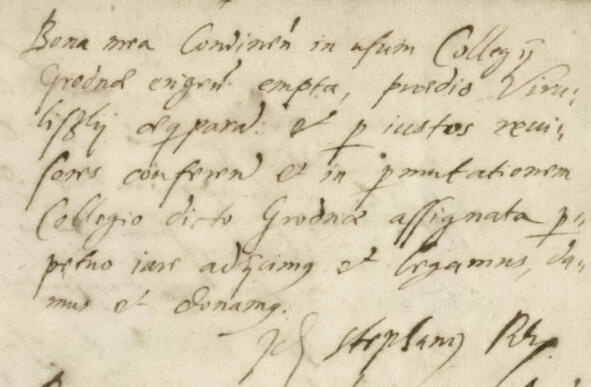 Bona mea Condinen in usum Collegij
Grodnæ erigen empta, prædio Viru-
lisskij æqpara: et p iustos reui-
sores conferen et in pmutationem
Collegio dicto Grodnæ assignata p-
petuo iure adijcimq et legamus, da-
mus et donamq.
Stephanq Rx.